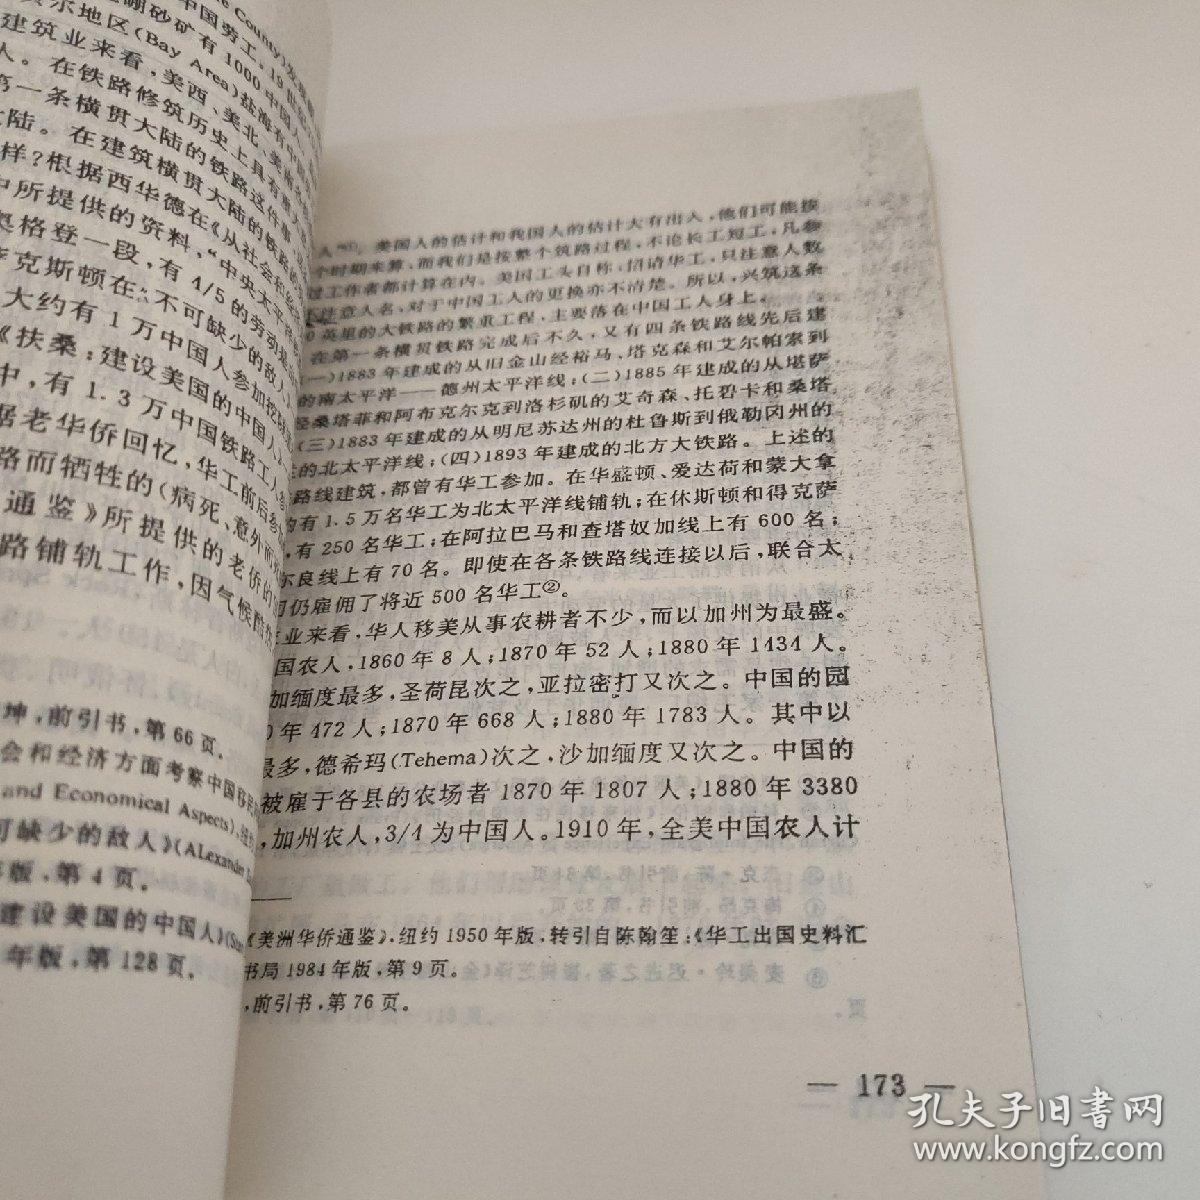 中国劳工。19世
硼砂矿有1000中国人
尔地区(Bay Area)盐海有中国
建筑业来看,美西、美北、美南
人。在铁路修筑历史上具有重大
第一条横贯大陆的铁路这件事
大陆。在建筑横贯大陆的铁路
样?根据西华德在《从社会和经
中所提供的资料,“中央太平洋
奥格登一段,有4/5的劳动是
克斯顿在“不可缺少的敌人
大约有1万中国人参加挖
《扶桑:建设美国的中国人
中,有1.3万中国铁路工人
据老华侨回忆,华工前后参
路而牺牲的(病死、意外而
通鉴》所提供的老侨的
路铺轨工作,因气候酷
坤,前引书,第66页。
会和经济方面考察中国移民
and Economical Aspects),纽
可缺少的敌人》(ALexander
版,第4页。
建设美国的中国人》
年版,第128页。
人。美国人的估计和我国人的估计大有出入,他们可能按
个时期来算,而我们是按整个筑路过程,不论长工短工,凡参
过工作者都计算在内。美国工头自称,招请华工,只注意人数
注意人名,对于中国工人的更换亦不清楚。所以,兴筑这条
0英里的大铁路的繁重工程,主要落在中国工人身上。
在第一条横贯铁路完成后不久,又有四条铁路线先后建
(一)1883年建成的从旧金山经裕马、塔克森和艾尔帕索到
的南太平洋——德州太平洋线;(二)1885年建成的从堪萨
经桑塔菲和阿布克尔克到洛杉矶的艾奇森、托碧卡和桑塔
(三)1883年建成的从明尼苏达州的杜鲁斯到俄勒冈州的
的北太平洋线;(四)1893年建成的北方大铁路。上述的
路线建筑,都曾有华工参加。在华盛顿、爱达荷和蒙大拿
有1.5万名华工为北太平洋线铺轨;在休斯顿和得克萨
,有250名华工;在阿拉巴马和查塔奴加线上有600名;
尔良线上有70名。即使在各条铁路线连接以后,联合太
司仍雇佣了将近500名华工②。
业来看,华人移美从事农耕者不少,而以加州为最盛。
国农人,1860年8人;1870年52人;1880年1434人。
加缅度最多,圣荷昆次之,亚拉密打又次之。中国的园
0年472人;1870年668人;1880年1783人。其中以
最多,德希玛(Tehema)次之,沙加缅度又次之。中国的
被雇于各县的农场者1870年1807人;1880年3380
,加州农人,3/4为中国人。1910年,全美中国农人计
《美洲华侨通鉴》,纽约1950年版,转引自陈翰笙:《华工出国史料汇
书局1984年版,第9页。
,前引书,第76页。
— 173 —
孔夫子旧书网
www.kongfz.com